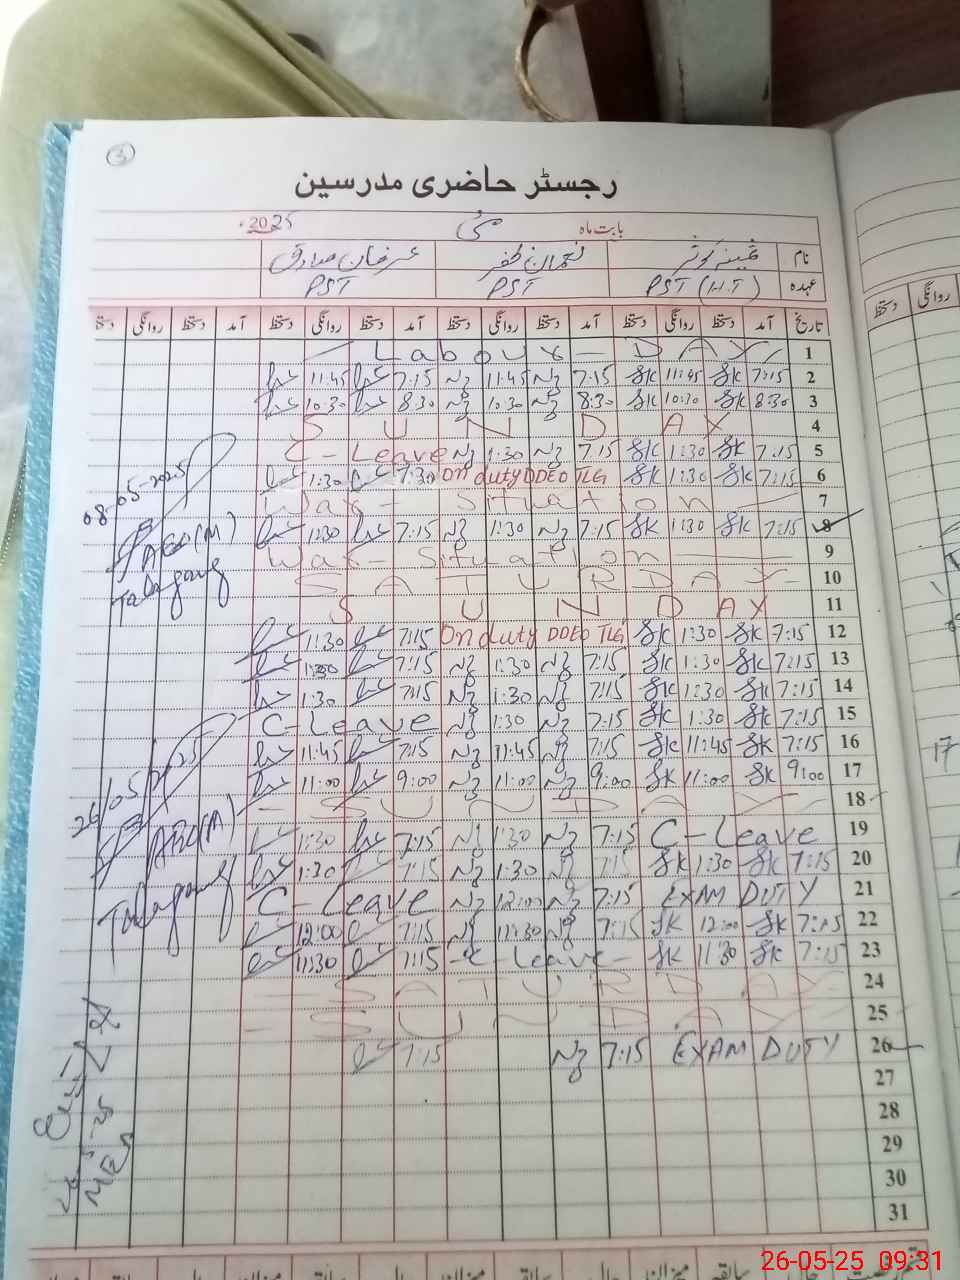 3
رجسٹر حاضری مدرسین
بابت ماہ مئی 2025ء
نام ثمینہ کوثر نعمان ظفر عرفان صادق
عہدہ PST (H.T) PST PST
تاریخ آمد دستخط روانگی دستخط آمد دستخط روانگی دستخط آمد دستخط روانگی دستخط آمد دستخط روانگی دستخط
Labour - DAY 1
11:45 7:15 Nz 11:45 Nz 7:15 SK 11:45 SK 7:15 2
10:30 8:30 Nz 10:30 Nz 8:30 SK 10:30 SK 8:30 3
SUNDAY 4
C-Leave Nz 1:30 Nz 7:15 SK 1:30 SK 7:15 5
1:30 7:30 On duty DDEO TLG SK 1:30 SK 7:15 6
War - Situation 7
1:30 7:15 Nz 1:30 Nz 7:15 SK 1:30 SK 7:15 8
War - Situation 9
SATURDAY 10
SUNDAY 11
1:30 7:15 On duty DDEO TLG SK 1:30 SK 7:15 12
1:30 7:15 Nz 1:30 Nz 7:15 SK 1:30 SK 7:15 13
1:30 7:15 Nz 1:30 Nz 7:15 SK 1:30 SK 7:15 14
C-Leave Nz 1:30 Nz 7:15 SK 1:30 SK 7:15 15
11:45 7:15 Nz 11:45 Nz 7:15 SK 11:45 SK 7:15 16
11:00 9:00 Nz 11:00 Nz 9:00 SK 11:00 SK 9:00 17
- SUNDAY 18
1:30 7:15 Nz 1:30 Nz 7:15 C-Leave 19
1:30 7:15 Nz 1:30 Nz 7:15 SK 1:30 SK 7:15 20
C-Leave Nz 12:00 Nz 7:15 EXAM DUTY 21
12:00 7:15 Nz Nz 7:15 SK 12:00 SK 7:15 22
11:30 7:15 - C-Leave - SK 11:30 SK 7:15 23
- SATURDAY 24
- SUNDAY 25
7:15 Nz 7:15 EXAM DUTY 26
27
28
29
30
31
08-05-2025
AEO(M)
Talagang
26/05/2025
AEO(M)
Talagang
روانگی دستخط
17
26-05-25 09:31